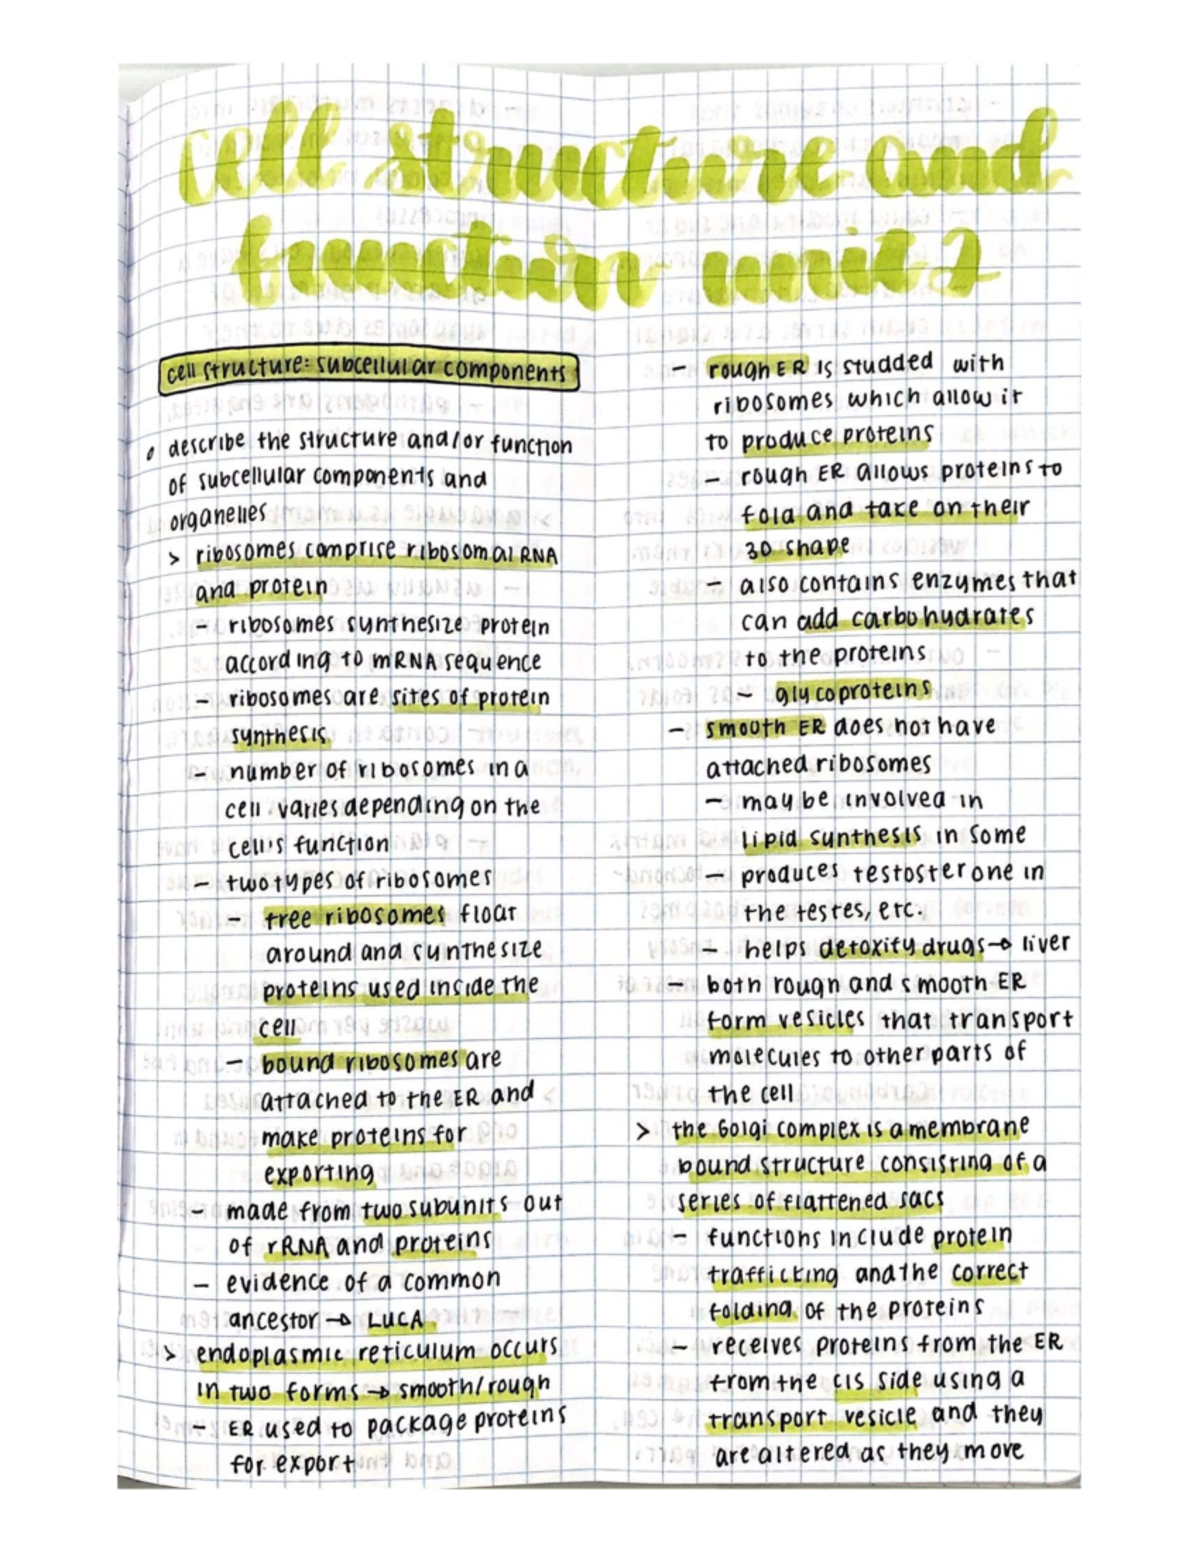 cell structure and
function unit 2
cell structure: subcellular components
describe the structure and/or function
of subcellular components and
organelles
> ribosomes comprise ribosomal RNA
and protein
- ribosomes synthesize protein
according to mRNA sequence
- ribosomes are sites of protein
synthesis
- number of ribosomes in a
cell varies depending on the
cell's function
- two types of ribosomes
free ribosomes float
around and synthesize
proteins used inside the
cell
- bound ribosomes are
attached to the ER and
make proteins for
exporting
- made from two subunits out
of rRNA and proteins
- evidence of a common
ancestor → LUCA
> endoplasmic reticulum occurs
in two forms → smooth/rough
- ER used to package proteins
for export
- rough ER is studded with
ribosomes which allow it
to produce proteins
- rough ER allows proteins to
fold and take on their
3D shape
- also contains enzymes that
can add carbohydrates
to the proteins
- glycoproteins
- smooth ER does not have
attached ribosomes
- may be involved in
lipid synthesis in some
- produces testosterone in
the testes, etc.
- helps detoxify drugs → liver
- both rough and smooth ER
form vesicles that transport
molecules to other parts of
the cell
> the Golgi complex is a membrane
bound structure consisting of a
series of flattened sacs
- functions include protein
trafficking and the correct
folding of the proteins
- receives proteins from the ER
from the cis side using a
transport vesicle and they
are altered as they move